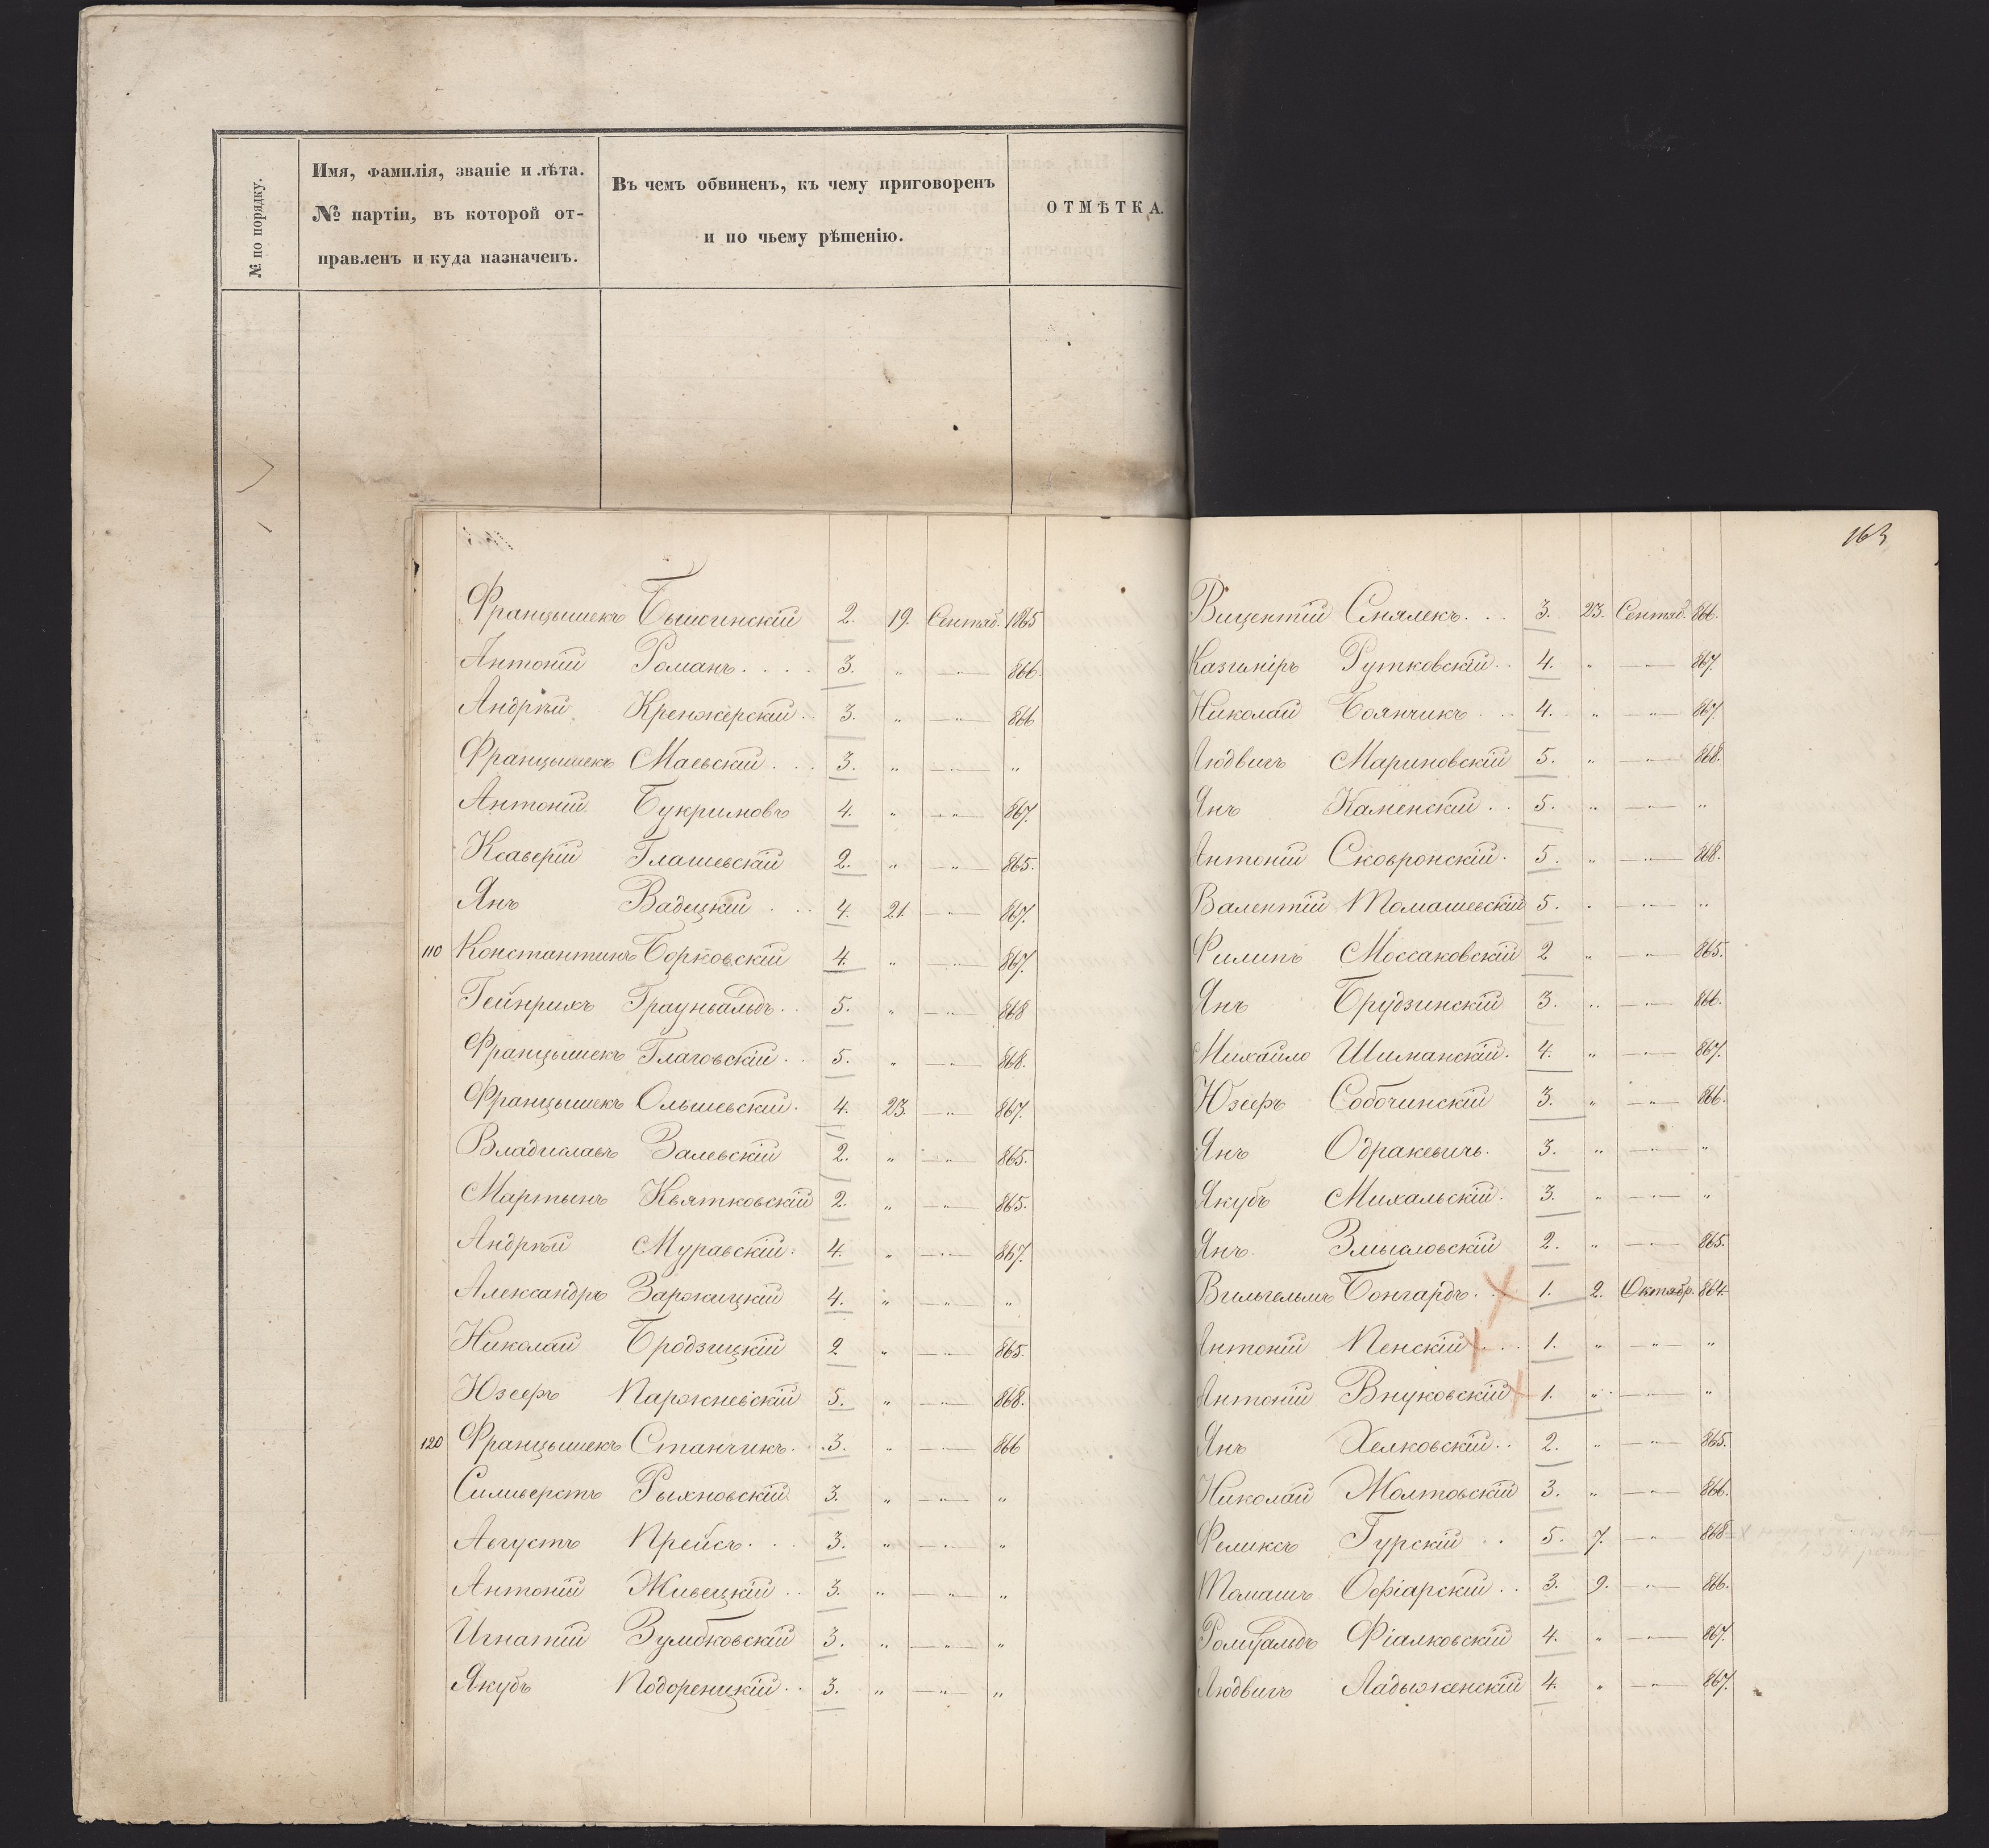 № по порядку.
Имя, фамилія, званіе и лѣта.
№ партіи, въ которой от-
правленъ и куда назначенъ.
Въ чемъ обвиненъ, къ чему приговоренъ
и по чьему рѣшенію.
ОТМѢТКА.
Францышекъ 2. 19. Сентяб. 1865
Антоній Романъ. . . . 3. " —"— 866.
Андрѣй Кренжерскій. 3. " —"— 866
Францышекъ Маевскій. . . 3. " —"— "
Антоній Букримовъ 4. " —"— 867.
Ксаверій Глашевскій 2. " —"— 865.
Янъ Вадецкій . . . 4. 21. —"— 867.
110 Константинъ Борковскій 4. " —"— 867.
Гейнрихъ Граунвальдъ. . 5. " —"— 868
Францышекъ Глаговскій. . 5. " —"— 868.
Францышекъ Ольшевскій. 4. 23. —"— 867.
Владиславъ Залевскій 2. " —"— 865.
Мартынъ Квятковскій 2. " —"— 865.
Андрѣй Муравскій. 4. " —"— 867.
Александръ Зарожицкій 4. " —"— "
Николай Бродзицкій 2 " —"— 865.
Юзефъ Паржневскій 5. " —"— 868.
120 Францышекъ Станчикъ. . 3. " —"— 866
Сильверстъ Рыхновскій 3. " —"— "
Августъ Прейсъ. . . 3. " —"— "
Антоній Живецкій . . 3. " —"— "
Игнатій Зумбковскій 3. " —"— "
Якубъ Подореницкій. . 3. " —"— "
163
Вицентій Смялекъ. . . 3. 23. Сентяб. 866.
Казимiръ Рутковскій. . 4. " —"— 867.
Николай Боянчикъ . . . 4. " —"— 867.
Людвигъ Мариновскій 5. " —"— 868.
Янъ Каменскій . . 5. " —"— "
Антоній Сковронскій. 5. " —"— 868.
Валентій Томашевскій 5. " —"— "
Филипъ Моссаковскій 2 " —"— 865.
Янъ Брудзинскій 3. " —"— 866.
Михайло Шиманскій. 4. " —"— 867.
Юзефъ Соботинскій 3. " —"— 866.
Янъ Одракевичъ. 3. " —"— "
Якубъ Михальскій. 3. " —"— "
Янъ. Змысловскій 2. " —"— 865.
Вильгельмъ Бонгардъ. . 1. 2. Октябр. 864.
Антоній Пенскій . . . 1. " —"— "
Антоній Внуковскій 1. " —"— "
Янъ Хелковскій. . 2. " —"— 865.
Николай Жолтовскій 3. " —"— 866.
Феликсъ Гурскій . . 5. 7. —"— 868
Томашъ Офіарскій . . 3. 9. —"— 866.
Ромуальдъ Фіалковскій 4. " —"— 867.
Людвигъ Ладыженскій 4. " —"— 867.